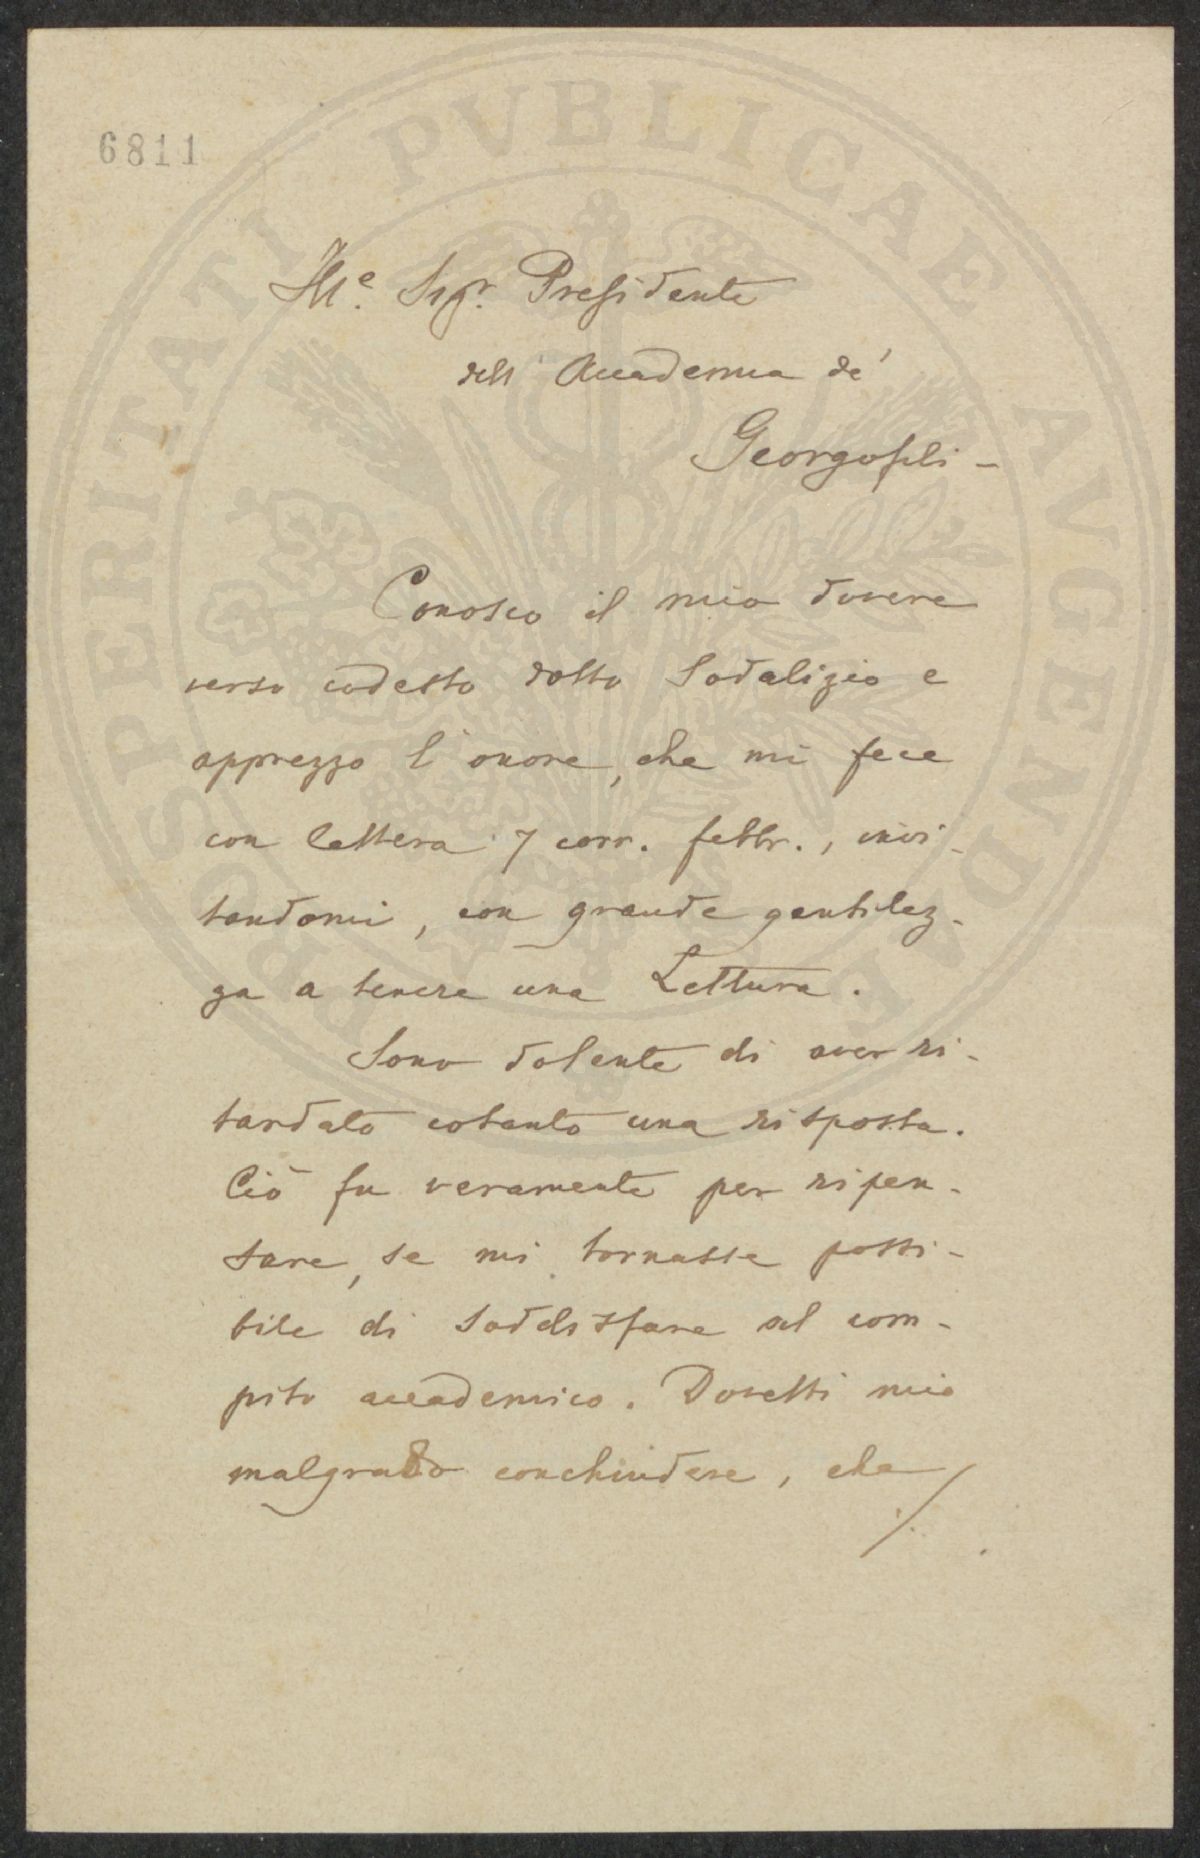 PROSPERITATI PVBLICAE AVGENDAE
6811
Ille. Sigr. Presidente
dell' Accademia de'
Georgofili -
Conosco il mio dovere
verso codesto dotto Sodalizio e
apprezzo l'onore, che mi fece
con lettera 7 corr. febbr., invi-
tandomi, con grande gentilez-
za a tenere una Lettura.
Sono dolente di aver ri-
tardato cotanto una risposta.
Ciò fu veramente per ripen-
sare, se mi tornasse possi-
bile di soddisfare al com-
pito accademico. Dovetti mio
malgrado conchiudere, che
./.